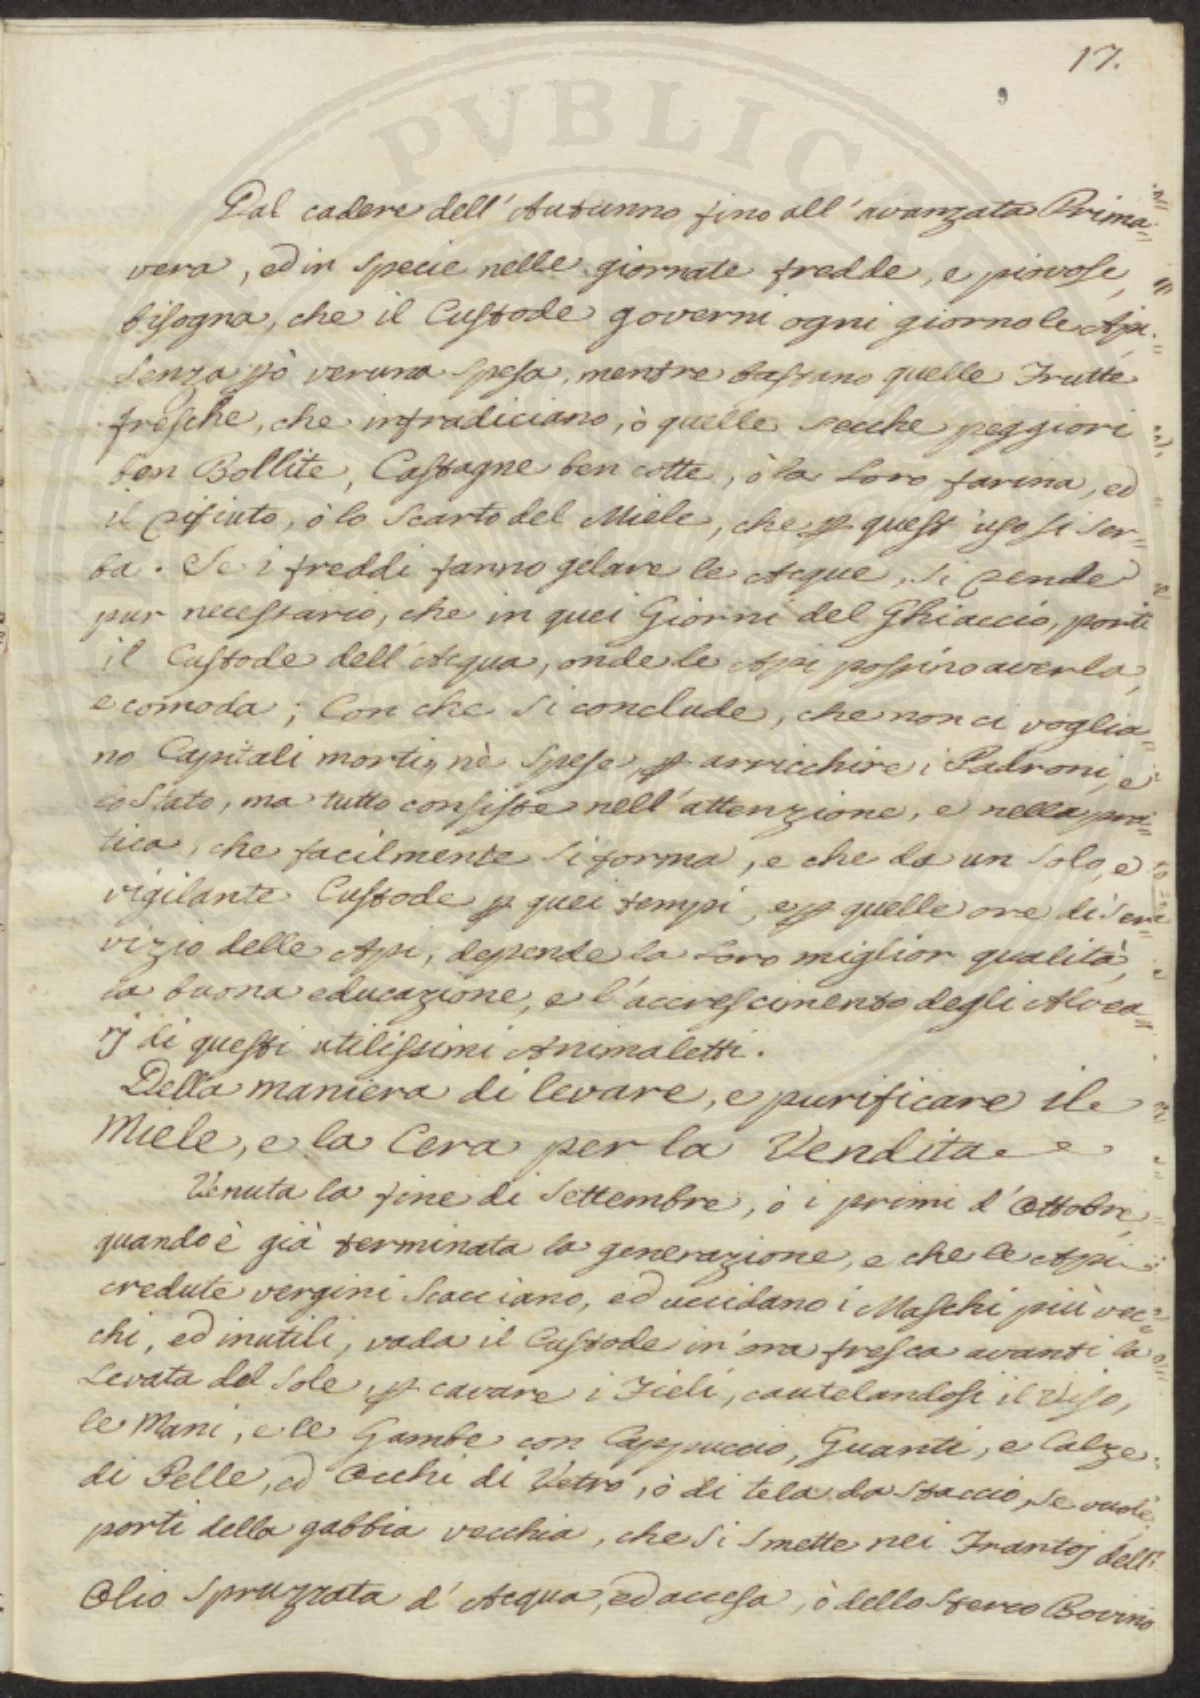 17.
Dal cadere dell'Autunno fino all'avanzata Prima=
vera, ed in specie nelle giornate fredde, e piovose,
bisogna, che il Custode governi ogni giorno le Api
senza pò veruna spesa, mentre bastano quelle Frutte
fresche, che infradiciano, ò quelle secche peggiori
ben Bollite, Castagne ben cotte, ò la loro farina, ed
il rifiuto, ò lo scarto del Miele, che p quest'uso si ser=
ba. Se i freddi fanno gelare le Acque, si rende
pur necessario, che in quei Giorni del Ghiaccio, porti
il Custode dell'Acqua, onde le Api possino averla,
e comoda; Con che si conclude, che non ci voglia=
no Capitali morti, nè spese p arricchire i Padroni, e
lo Stato, ma tutto consiste nell'attenzione, e nella pra=
tica, che facilmente si forma, e che da un solo, e
vigilante Custode p quei tempi, e p quelle ore di ser=
vizio delle Api, depende la loro miglior qualità,
la buona educazione, e l'accrescimento degli Alvea=
rj di questi utilissimi Animaletti.
Della maniera di levare, e purificare il
Miele, e la Cera per la Vendita
Venuta la fine di Settembre, ò i primi d'Ottobre,
quando è già terminata la generazione, e che le Api
credute vergini scacciano, ed uccidano i Maschi più vec=
chi, ed inutili, vada il Custode in'ora fresca avanti la
Levata del Sole, p cavare i Fieli, cautelandosi il Viso,
le Mani, e le Gambe con Cappuccio, Guanti, e Calze
di Pelle, ed Occhi di Vetro, ò di tela da staccio, se vuole,
porti della gabbia vecchia, che si smette nei Frantoj dell'
Olio spruzzata d'Acqua, ed accesa, ò dello sterco Bovino
PUBLIC